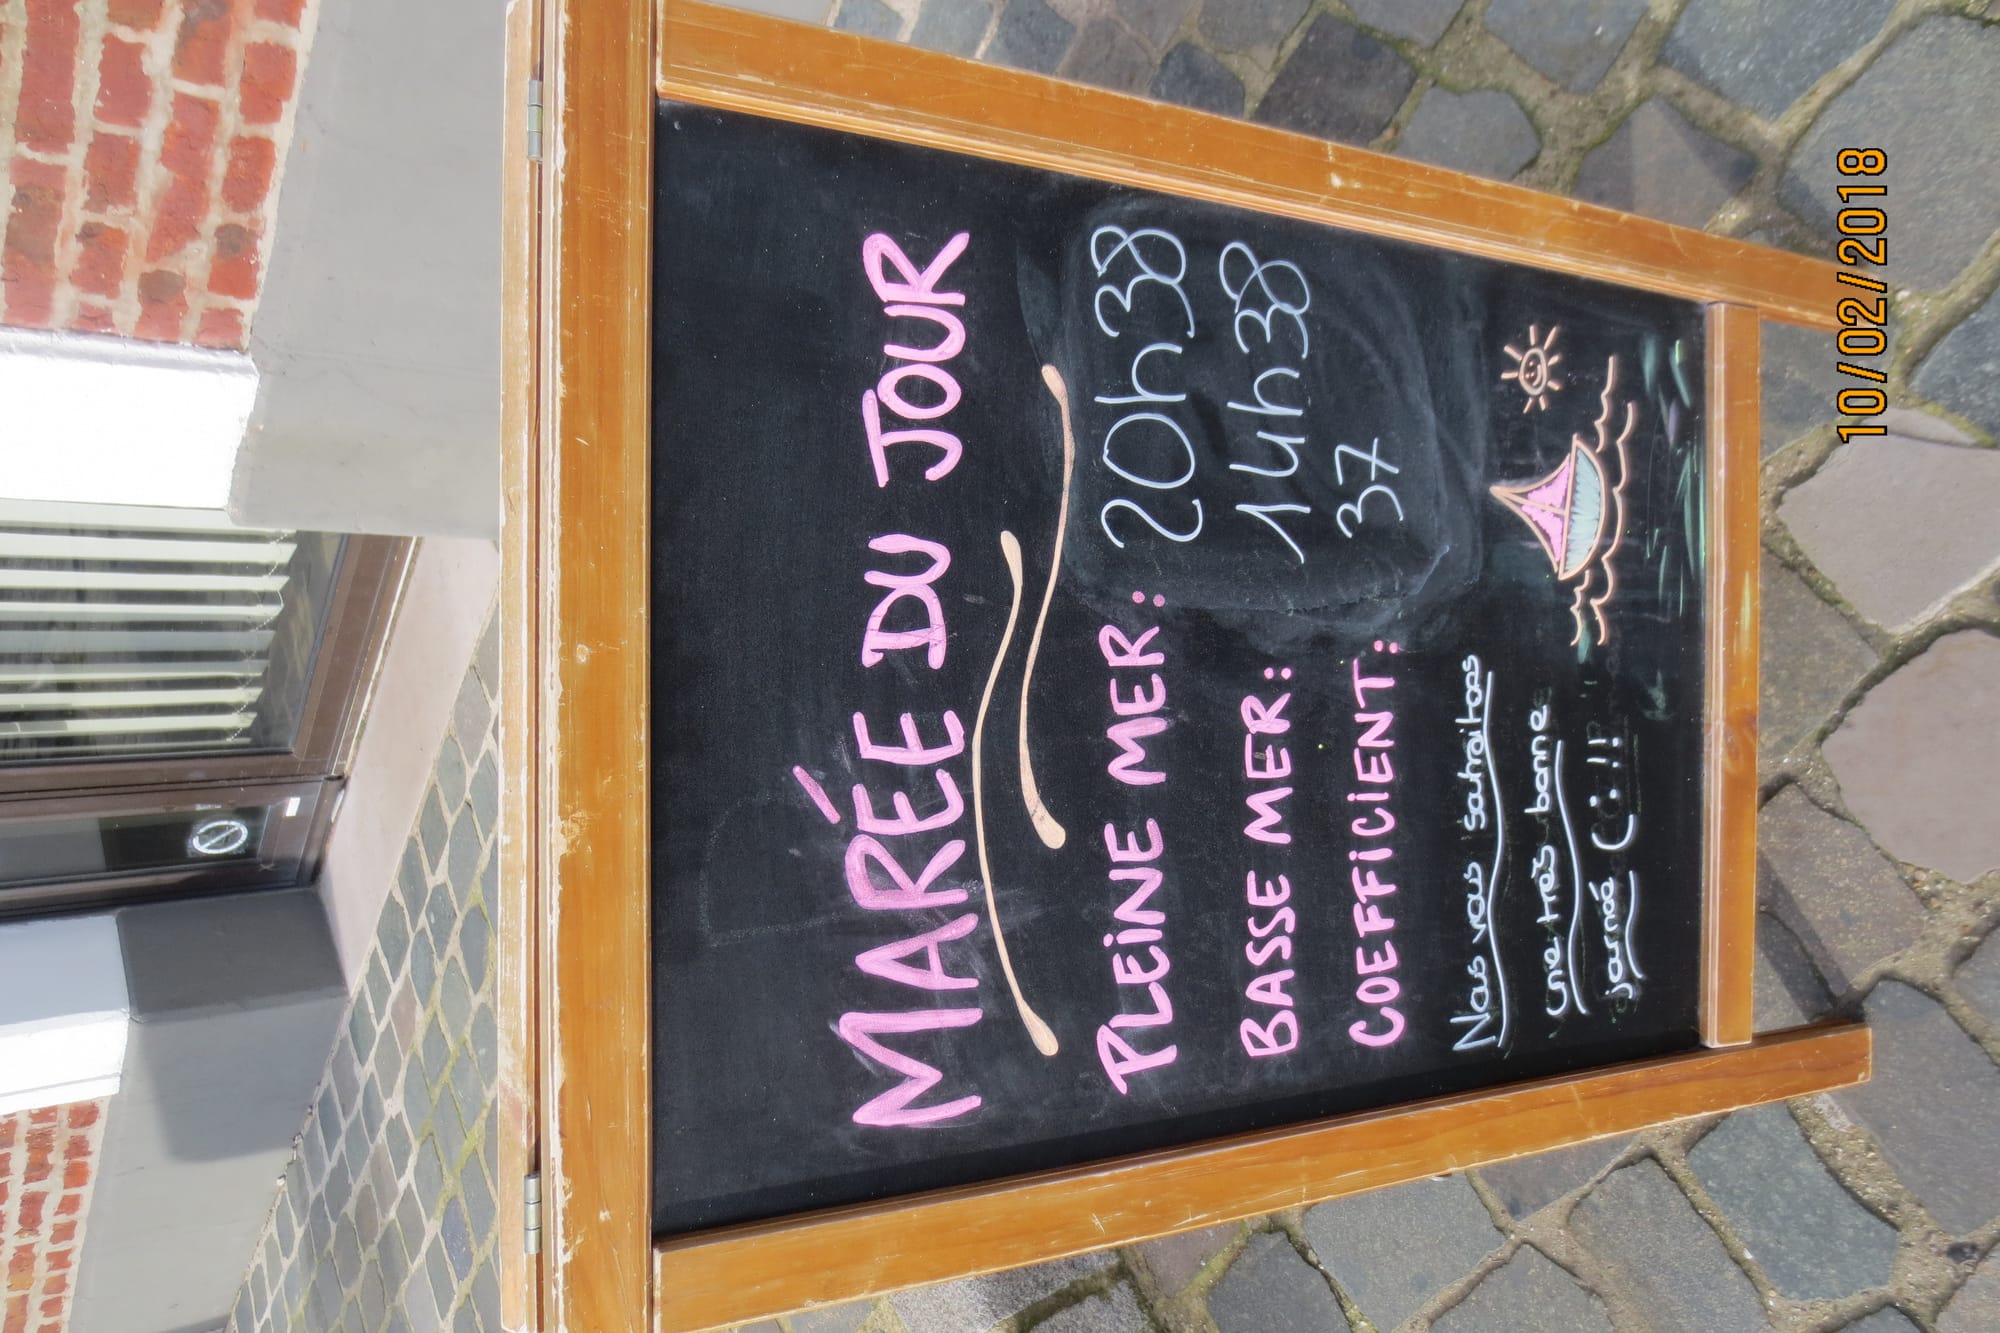 MARÉE DU JOUR
PLEINE MER: 20h38
BASSE MER: 14h38
COEFFICIENT: 37
Nous vous souhaitons
une très bonne
journée (:!!
10/02/2018